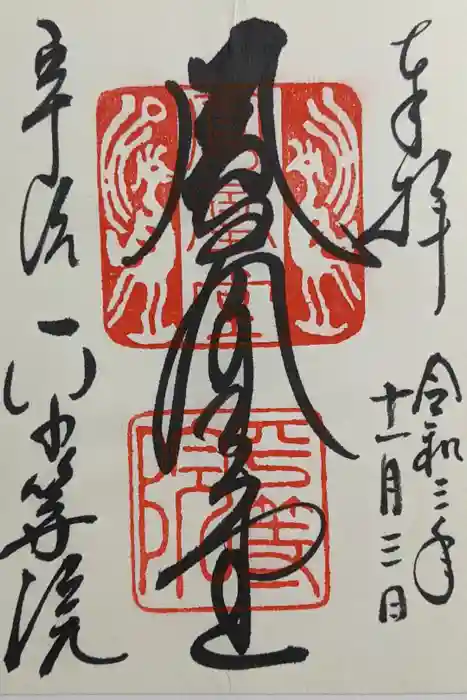 奉拝
令和三年
十一月三日
鳳凰堂
鳳凰堂
平等院
宇治
平等院